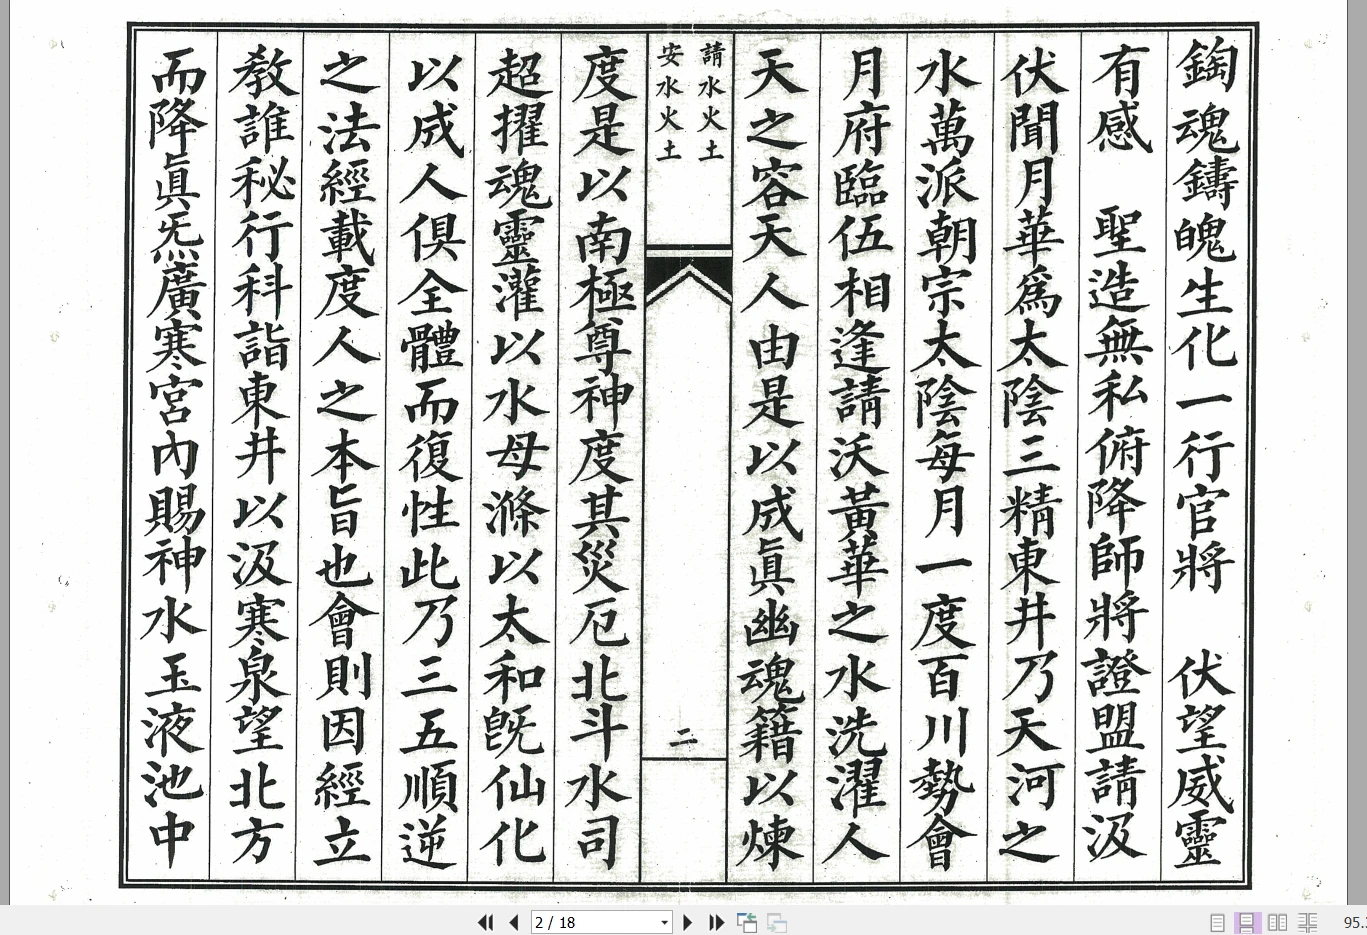 鋾魂鑄魄生化一行官將　伏望威靈
有感　聖造無私俯降師將證盟請汲
伏聞月華爲太陰三精東井乃天河之
水萬派朝宗太陰每月一度百川勢會
月府臨伍相逢請沃黃華之水洗濯人
天之容天人由是以成眞幽魂籍以煉
請水火土
安水火土
二
度是以南極尊神度其災厄北斗水司
超擢魂靈灌以水母滌以太和旣仙化
以成人俱全體而復性此乃三五順逆
之法經載度人之本旨也會則因經立
敎誰秘行科詣東井以汲寒泉望北方
而降眞炁廣寒宮內賜神水玉液池中
2 / 18
95.